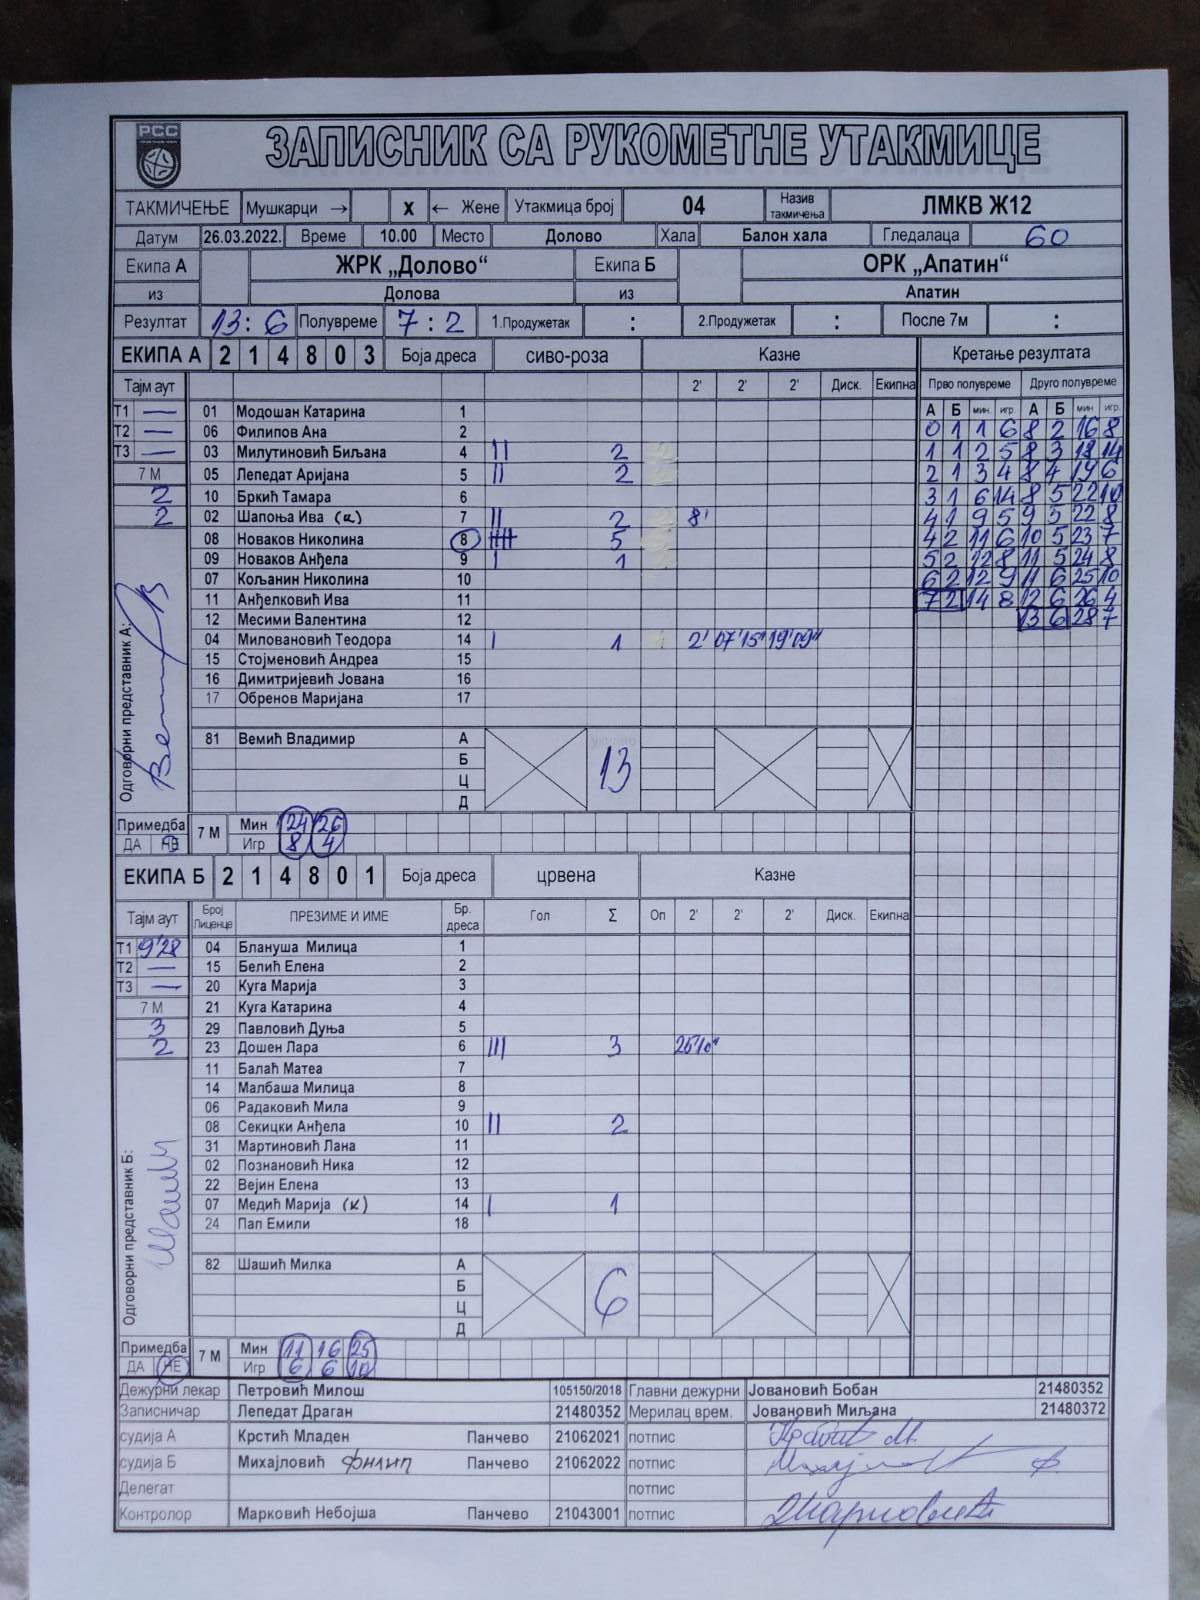 РСС
ЗАПИСНИК СА РУКОМЕТНЕ УТАКМИЦЕ
ТАКМИЧЕЊЕ Мушкарци → X ← Жене Утакмица број 04 Назив такмичења ЛМКВ Ж12
Датум 26.03.2022. Време 10.00 Место Долово Хала Балон хала Гледалаца 60
Екипа А ЖРК „Долово“ Екипа Б ОРК „Апатин“
из Долова из Апатин
Резултат 13 : 6 Полувреме 7 : 2 1.Продужетак : 2.Продужетак : После 7м :
ЕКИПА А 2 1 4 8 0 3 Боја дреса сиво-роза Казне Кретање резултата
Тајм аут 2' 2' 2' Диск. Екипна Прво полувреме Друго полувреме
А Б мин. игр. А Б мин игр.
Т1 — 01 Модошан Катарина 1
Т2 — 06 Филипов Ана 2 0 1 1 6 8 2 16 8
Т3 — 03 Милутиновић Биљана 4 II 2 1 1 2 5 8 3 18 14
7 М 05 Лепедат Аријана 5 II 2 2 1 3 4 8 4 19 6
2 10 Бркић Тамара 6 3 1 6 14 8 5 22 10
2 02 Шапоња Ива (к) 7 II 2 8' 4 1 9 5 9 5 22 8
08 Новаков Николина 8 IIII 5 4 2 11 6 10 5 23 7
09 Новаков Анђела 9 I 1 5 2 12 8 11 5 24 8
07 Кољанин Николина 10 6 2 12 9 11 6 25 10
11 Анђелковић Ива 11 7 2 14 8 12 6 26 4
12 Месими Валентина 12 13 6 28 7
04 Миловановић Теодора 14 I 1 2' 07'15" 19'09"
15 Стојменовић Андреа 15
16 Димитријевић Јована 16
17 Обренов Маријана 17
Одговорни представник А:
81 Вемић Владимир А 13
Б
Ц
Д
Примедба 7 М Мин 24 26
ДА НЕ Игр 8 4
ЕКИПА Б 2 1 4 8 0 1 Боја дреса црвена Казне
Тајм аут Број Лиценце ПРЕЗИМЕ И ИМЕ Бр. дреса Гол Σ Оп 2' 2' 2' Диск. Екипна
Т1 9'28 04 Блануша Милица 1
Т2 — 15 Белић Елена 2
Т3 — 20 Куга Марија 3
7 М 21 Куга Катарина 4
3 29 Павловић Дуња 5
2 23 Дошен Лара 6 III 3 25'10"
11 Балаћ Матеа 7
14 Малбаша Милица 8
06 Радаковић Мила 9
08 Секицки Анђела 10 II 2
31 Мартиновић Лана 11
02 Познановић Ника 12
22 Вејин Елена 13
07 Медић Марија (к) 14 I 1
24 Пап Емили 18
Одговорни представник Б:
82 Шашић Милка А 6
Б
Ц
Д
Примедба 7 М Мин 11 16 25
ДА НЕ Игр 6 6 10
Дежурни лекар Петровић Милош 105150/2018 Главни дежурни Јовановић Бобан 21480352
Записничар Лепедат Драган 21480352 Мерилац врем. Јовановић Миљана 21480372
судија А Крстић Младен Панчево 21062021 потпис
судија Б Михајловић Филип Панчево 21062022 потпис
Делегат потпис
Контролор Марковић Небојша Панчево 21043001 потпис